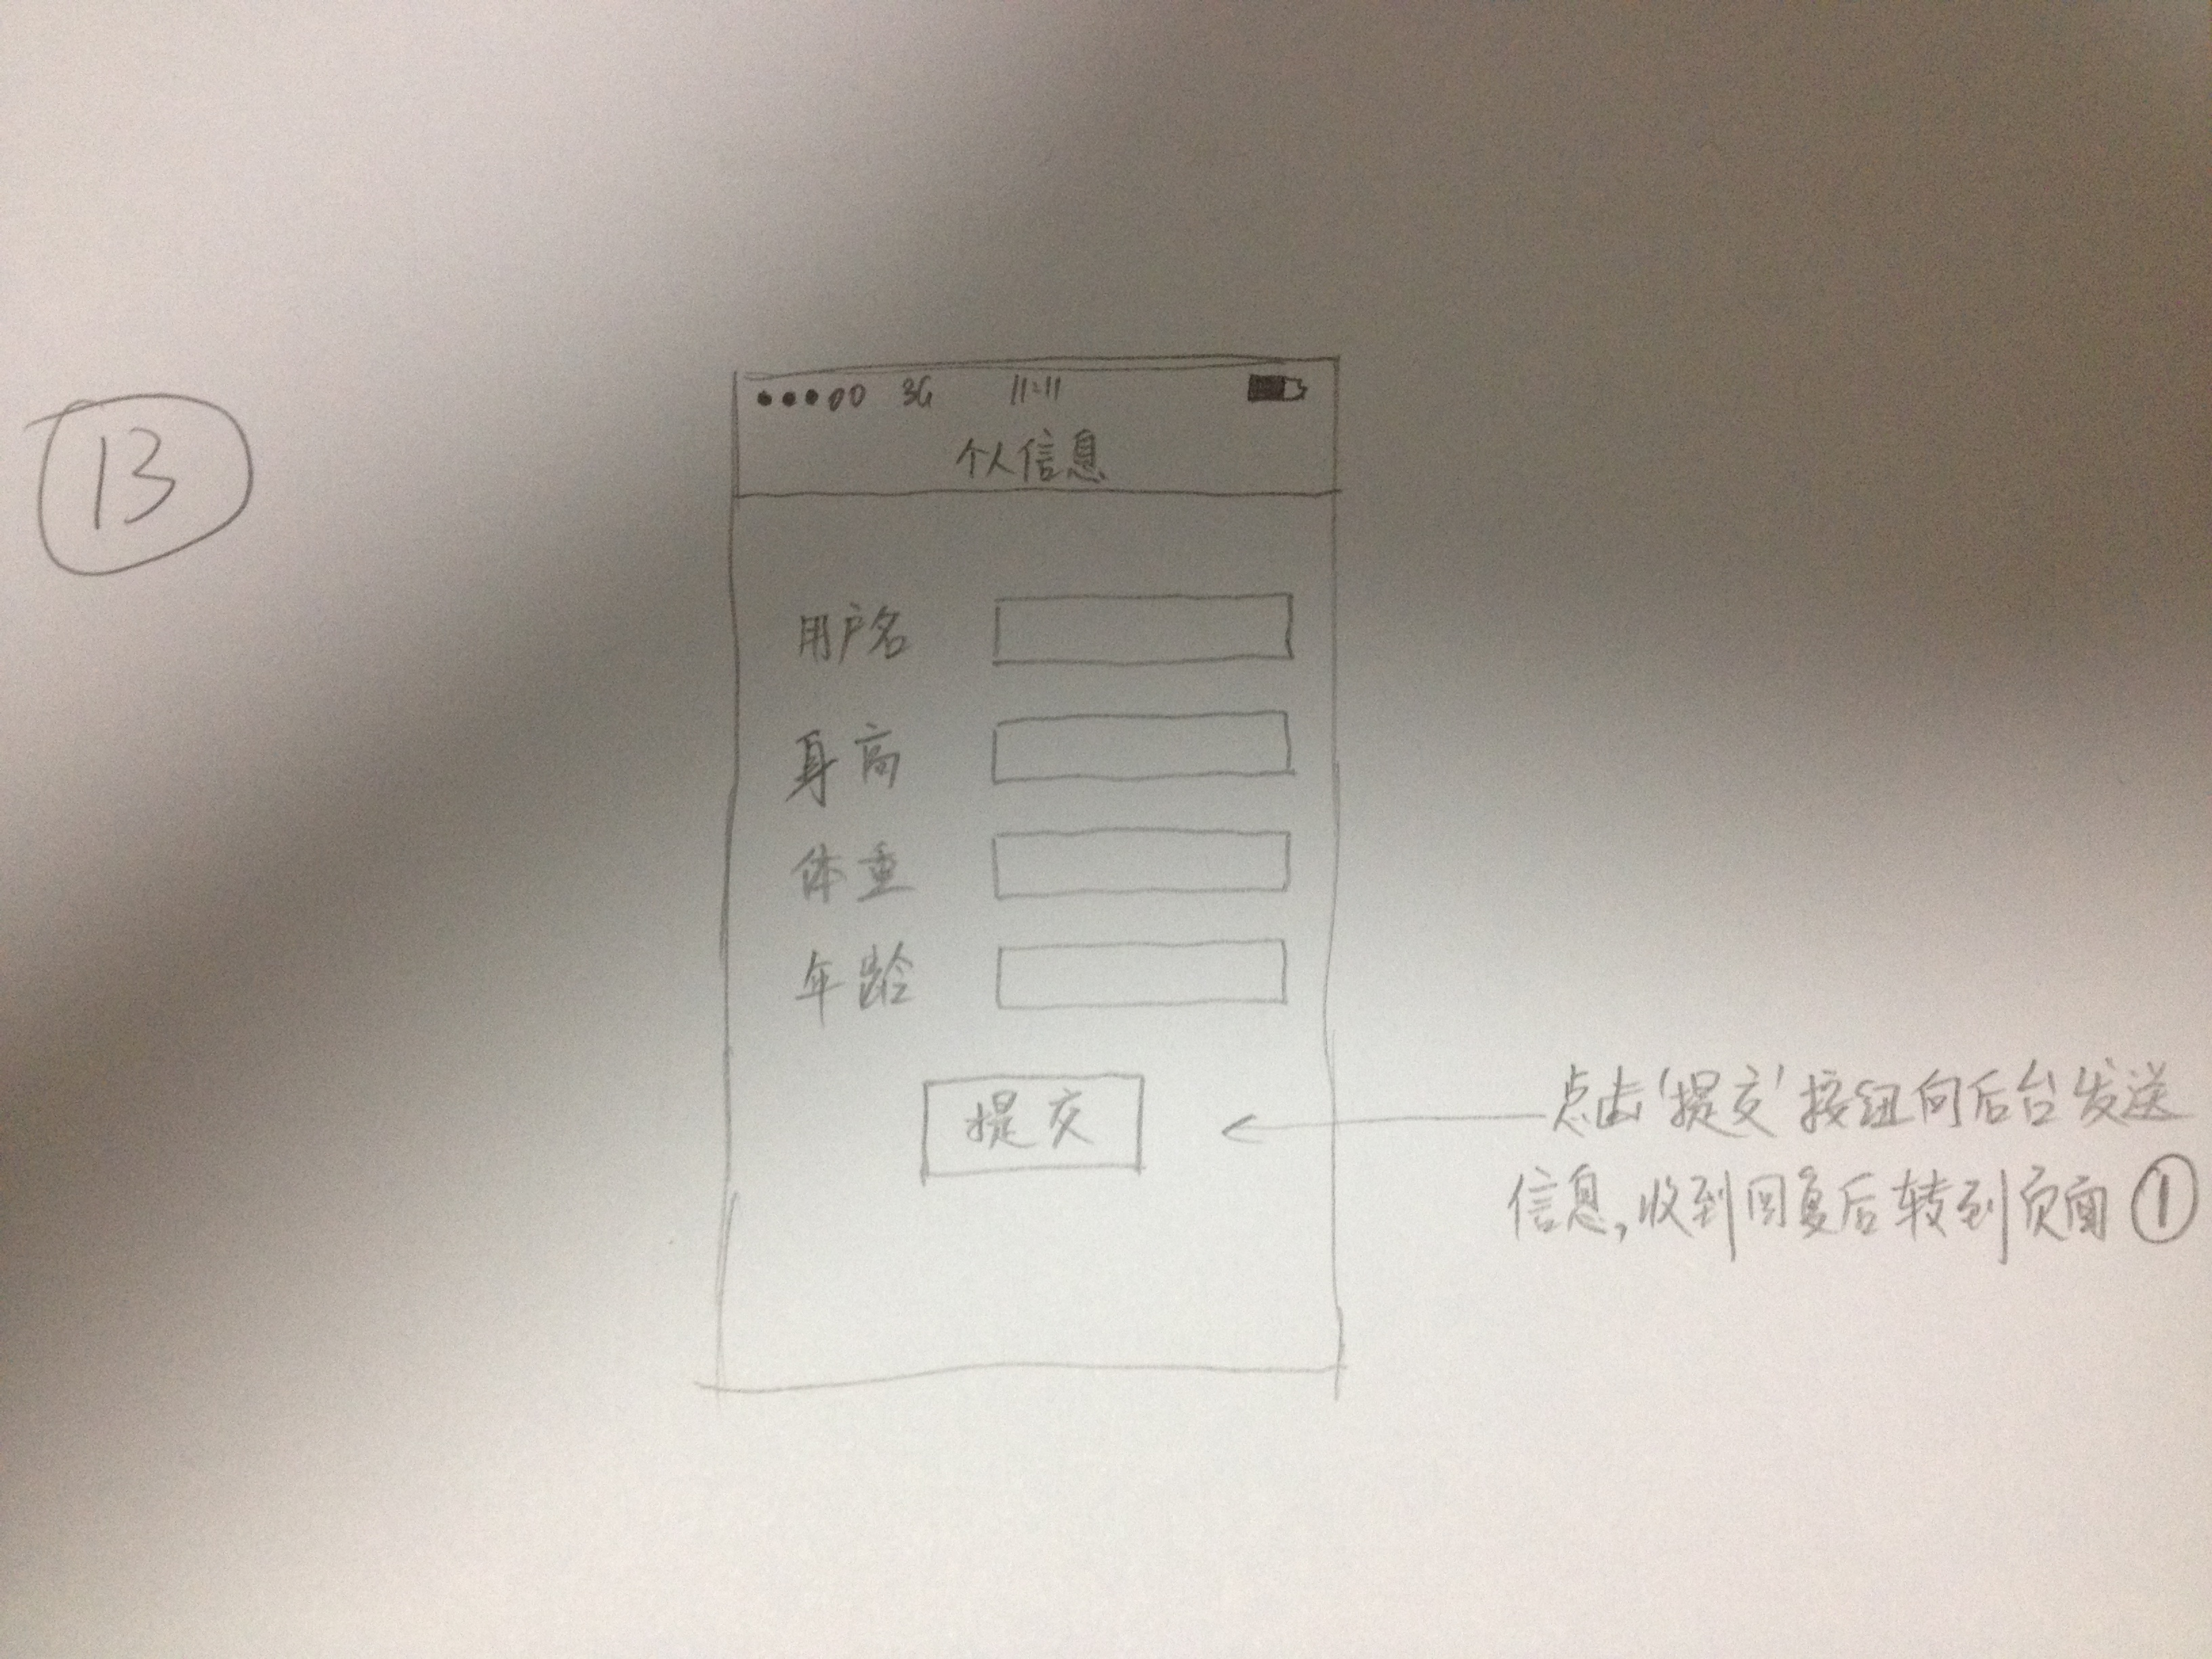 13
3G 11:11
个人信息
用户名
身高
体重
年龄
提交
点击'提交'按钮向后台发送
信息,收到回复后转到页面①